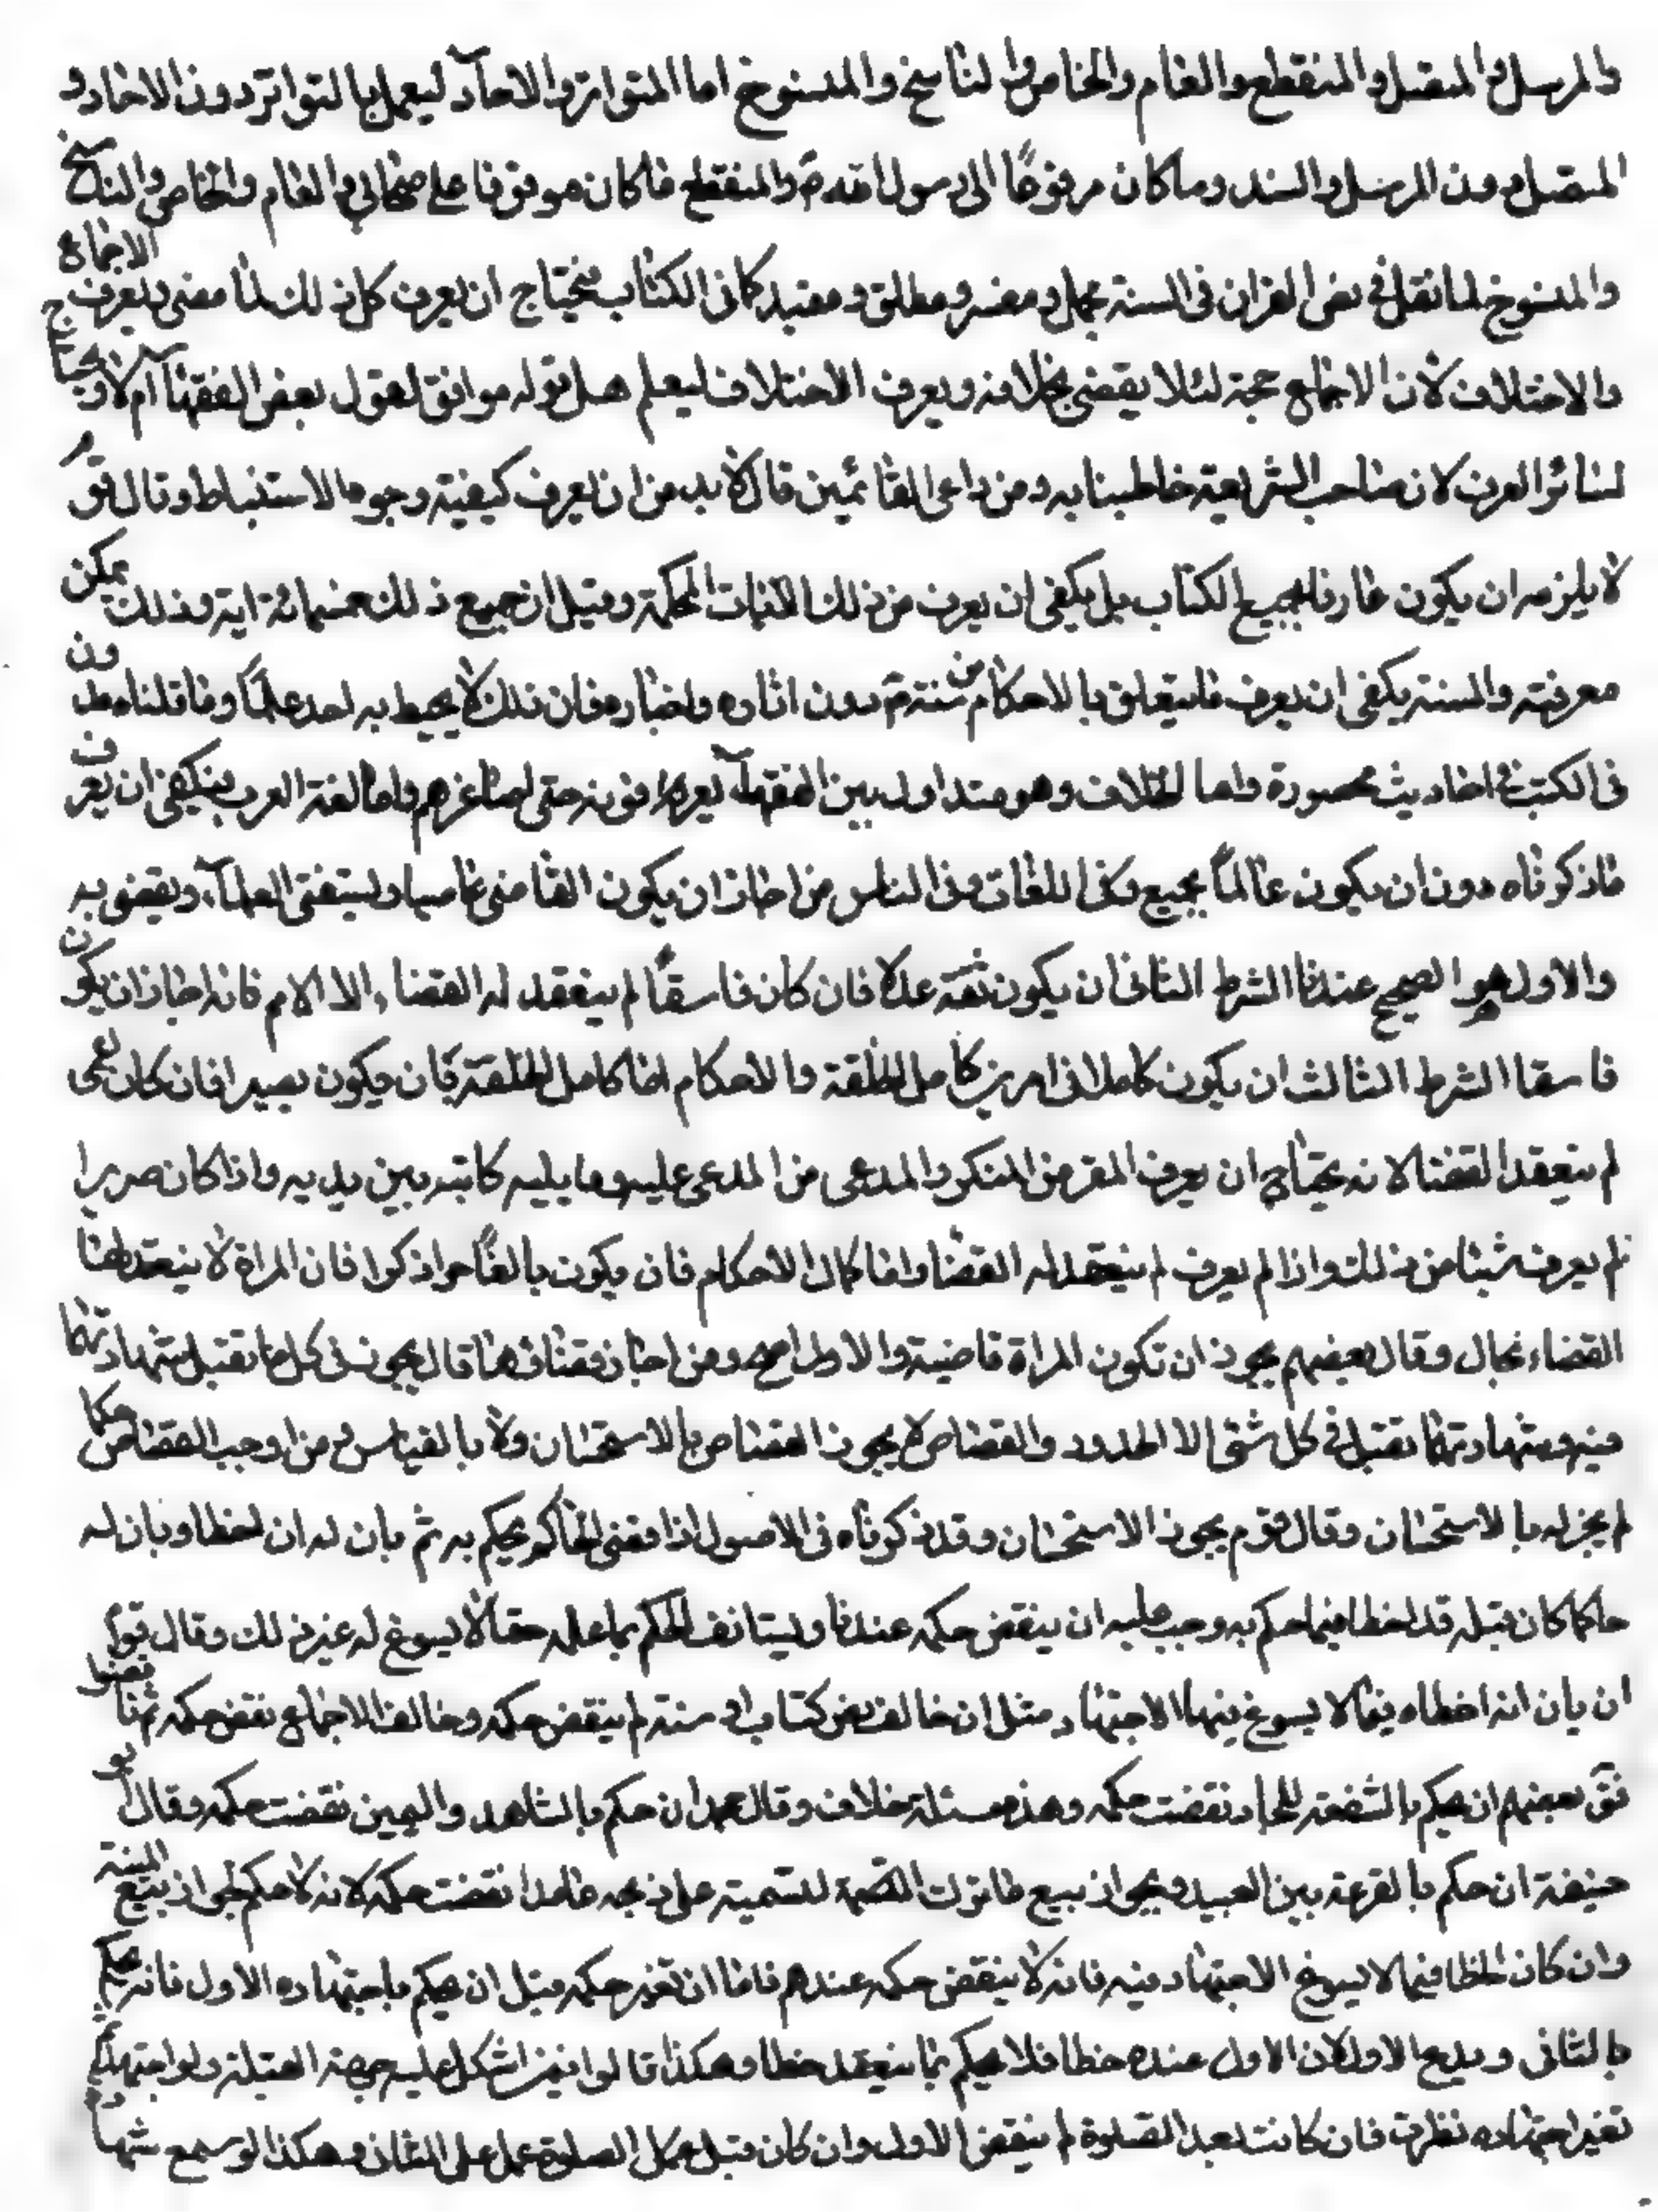 والمرسل والمتصل والمنقطع والعام والخاص والناسخ والمنسوخ اما المتواتر والاحاد ليعمل بالتواتر دون الاحاد و
المتصل دون المرسل والسند وما كان مرفوعًا الى رسول الله ص والمنقطع ما كان موقوفا على صحابي والعام والخاص والناسخ
والمنسوخ لما نقل في نص القران في السنة مجمل ومفسر ومطلق ومقيد كما في الكتاب فيحتاج ان يعرف كل ذلك لما مضى ويعرف الاجماع
والاختلاف لان الاجماع حجة لئلا يقضي بخلافه ويعرف الاختلاف ليعلم هل قوله موافق لقول بعض الفقهاء ام لا ويحتاج
لسائر العرب لان صاحب الشريعة خاطبنا به ومن راعى القائمين قال لا بد من ان يعرف كيفية وجوه الاستنباط وقال قوم
لا يلزمه ان يكون عارفا بجميع الكتاب بل يكفي ان يعرف من ذلك الايات المحكمة وقيل ان جميع ذلك خمسمائة اية وذلك يمكن
معرفته والسنة يكفي ان يعرف ما يتعلق بالاحكام من سنته ص دون اثاره واخباره فان ذلك لا يحيط به احد علمًا وما قلناه مدون
في الكتب في احاديث محصورة واما الخلاف وهو متداول بين الفقهاء يعرفونه حتى اصاغرهم واما لغة العرب فيكفي ان يعرف
ما ذكرناه دون ان يكون عالمًا بجميع اللغات وفي الناس من اجاز ان يكون القاضي عاميا ويستفتي العلماء ويقضي به
والاول هو الصحيح عندنا الشرط الثاني ان يكون ثقة عدلا فان كان فاسقًا لم ينعقد له القضاء الا الاصم فانه اجاز ان يكون
فاسقا الشرط الثالث ان يكون كاملا في امرين كامل الخلقة والاحكام اما كامل الخلقة فان يكون بصيرا فان كان اعمى
لم ينعقد القضا لانه يحتاج ان يعرف المقر من المنكر والمدعى من المدعى عليه وما يليه كاتبه بين يديه واذا كان ضريرا
لم يعرف شيئا من ذلك واذا لم يعرف لم ينعقد له القضا واما كمال الاحكام فان يكون بالغًا حرا ذكرا فان المراة لا ينعقد لها
القضاء بحال وقال بعضهم يجوز ان تكون المراة قاضية والاول اصح ومن اجاز قضاءها قال يجوز في كل ما تقبل شهادتها
فيه وشهادتها تقبل في كل شئ الا الحدود والقصاص لا يجوز القضاء بالاستحسان ولا بالقياس ومن اوجب القضاء حكما
لم يجز له بالاستحسان وقال قوم يجوز الاستحسان وقد ذكرناه في الاصول اذا قضى الحاكم بحكم به ثم بان له ان اخطا وبان له
حاكما كان قبله قد اخطا فيما حكم به وجب عليه ان ينقض حكمه عندنا ويستانف الحكم بما علمه حقا لا يسوغ له غير ذلك وقال قوم
ان بان انه اخطاه فيما لا يسوغ فيها الاجتهاد مثل ان خالف نص كتاب او سنة لم ينقض حكمه وخالف الاجماع نقض حكمه ثم ناقضوا
فق بعضهم ان حكم بالشفعة للجار نقضت حكمه وهذه مسئلة خلاف وقال محمد ان حكم بالشاهد واليمين نقضت حكمه وقال ابو
حنيفة ان حكم بالقرعة بين العبيد ويجواز بيع ما ترك التسمية على ذبحه عامدا نقضت حكمه لانه لا حكم بجواز بيع الميتة
وان كان الخطا فيما لا يسوغ الاجتهاد فيه فانه لا ينقض حكمه عندهم فاما ان تغير حكمه قبل ان يحكم باجتهاده الاول فانه يحكم
بالثاني ويدع الاول لان الاول عنده خطا فلا يحكم بما يعتقد خطا وهكذا قالوا فيمن اشكل عليه جهة القبلة ولو اجتهد ثم
تغير اجتهاده نظرت فان كانت بعد الصلوة لم ينقض الاول وان كان قبل عمل الصلوة عمل على الثاني وهكذا لو سمع شهادة